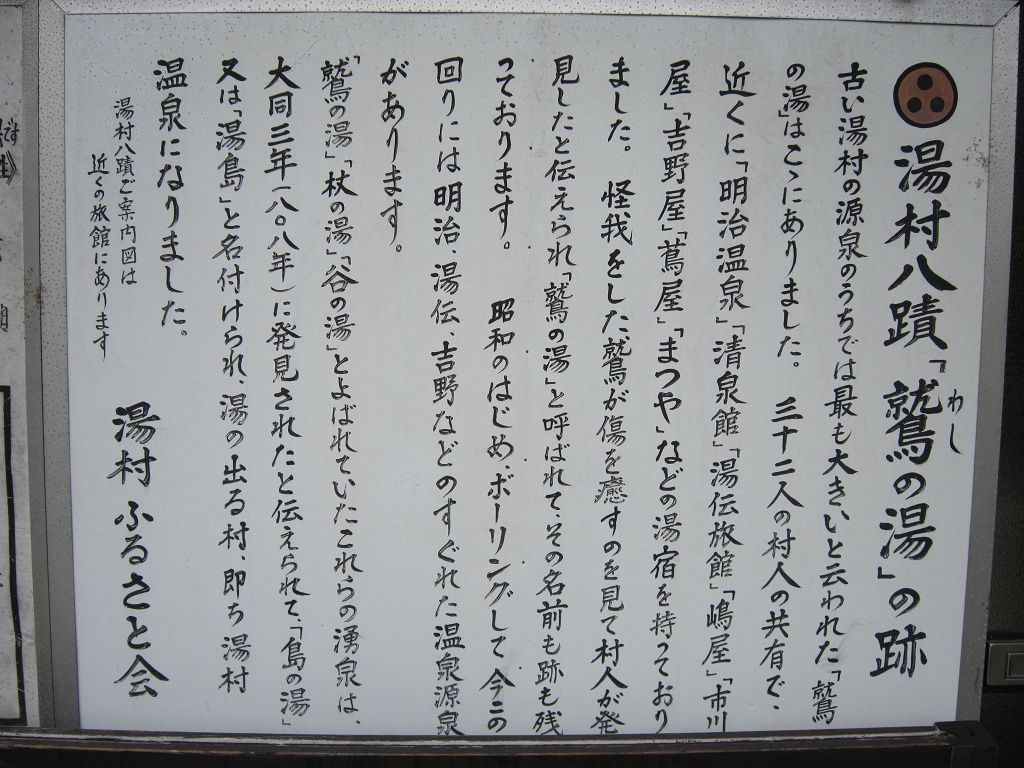 湯村八蹟「鷲の湯」の跡
わし
古い湯村の源泉のうちでは最も大きいと云われた「鷲
の湯」はこゝにありました。 三十二人の村人の共有で、
近くに「明治温泉」「清泉館」「湯伝旅館」「嶋屋」「市川
屋」「吉野屋」「蔦屋」「まつや」などの湯宿を持っており
ました。 怪我をした鷲が傷を癒すのを見て村人が発
見したと伝えられ「鷲の湯」と呼ばれて、その名前も跡も残
っております。 昭和のはじめ、ボーリングして今この
回りには明治、湯伝、吉野などのすぐれた温泉源泉
があります。
「鷲の湯」「杖の湯」「谷の湯」とよばれていたこれらの湧泉は、
大同三年(八〇八年)に発見されたと伝えられて、「島の湯」
又は「湯島」と名付けられ、湯の出る村、即ち湯村
温泉になりました。
湯村八蹟ご案内図は
近くの旅館にあります
湯村ふるさと会